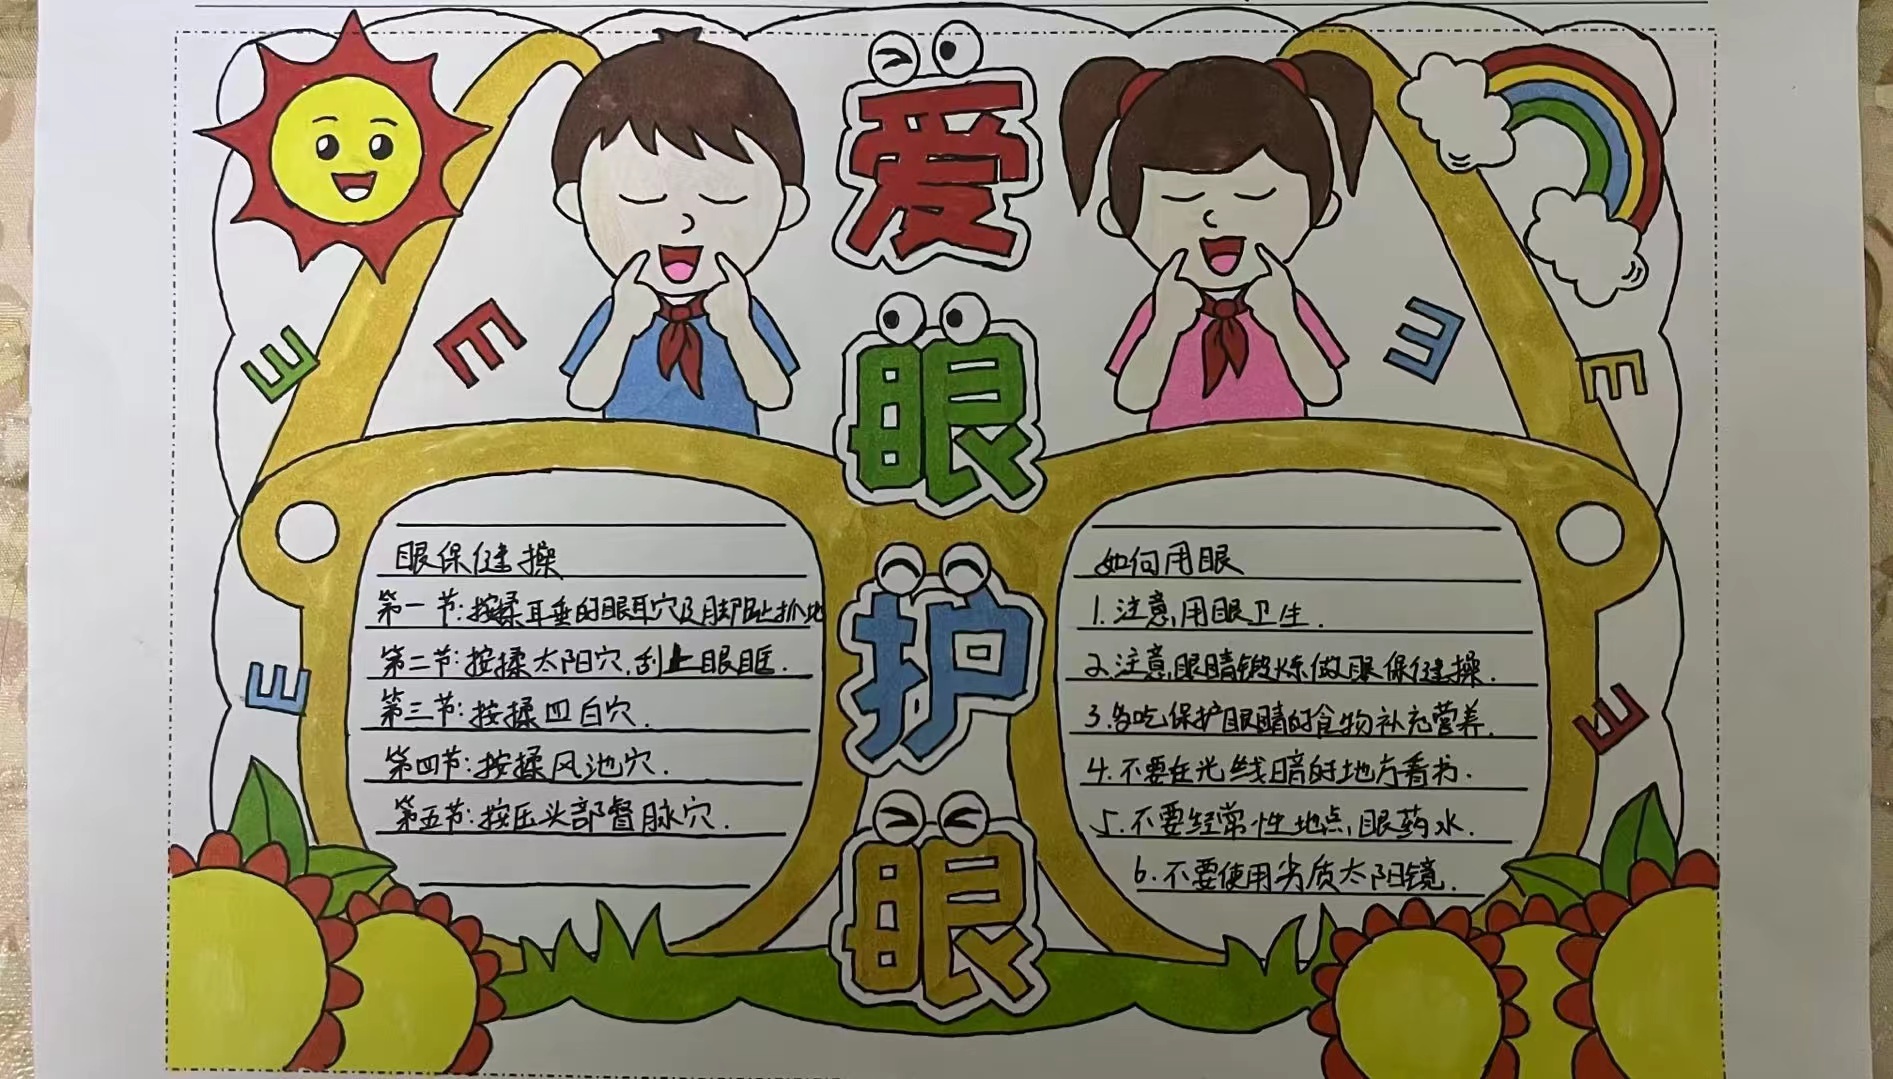 爱
眼
护
眼
眼保健操
第一节:按揉耳垂的眼耳穴及脚趾抓地
第二节:按揉太阳穴.刮上眼眶.
第三节:按揉四白穴.
第四节:按揉风池穴.
第五节:按压头部督脉穴.
如何用眼
1.注意用眼卫生.
2.注意眼睛锻炼做眼保健操.
3.多吃保护眼睛的食物补充营养.
4.不要在光线暗的地方看书.
5.不要经常性地点眼药水.
6.不要使用劣质太阳镜.
E
E
E
E
E
E